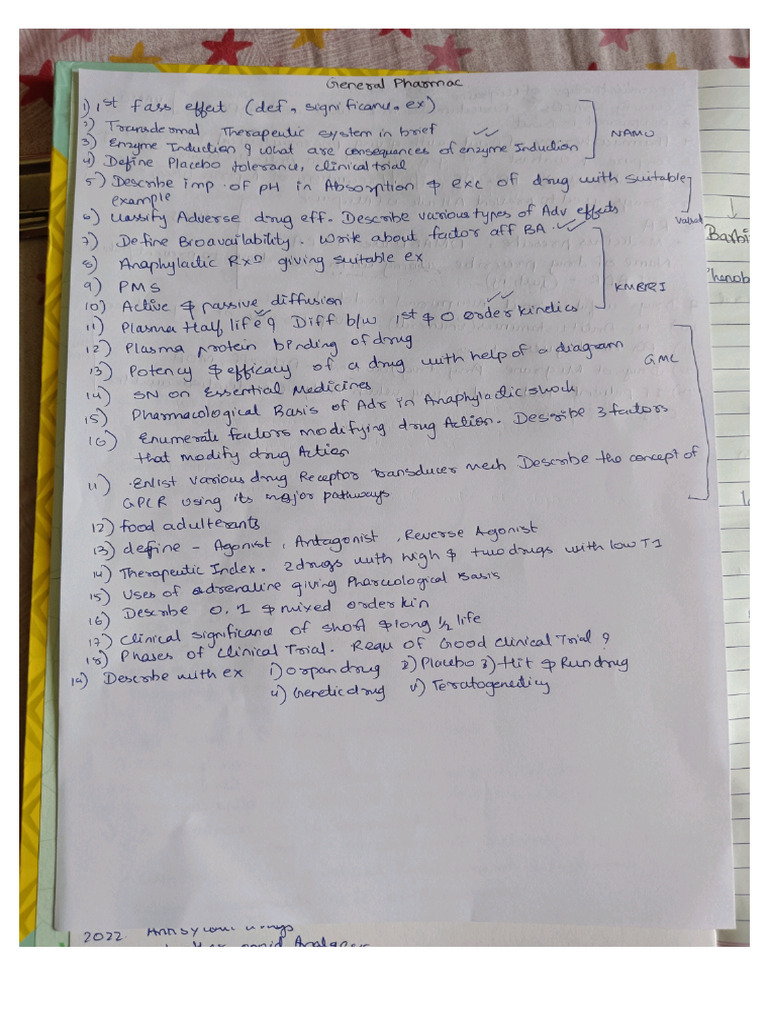 General Pharmac
1) 1st Pass effect (def, significanu, ex)
2) Transdermal Therapeutic system in brief
3) Enzyme Induction & what are consequences of enzyme Induction
4) Define Placebo tolerance, clinical trial
NAMO
5) Describe imp of pH in Absorption & exc of drug with suitable
example
6) classify Adverse drug eff. Describe various types of Adv effects
Valsad
7) Define Bioavailability. Write about factor aff BA.
8) Anaphylactic Rxn giving suitable ex
9) PMS
10) Active & passive diffusion
KMBRI
11) Plasma Half life & Diff b/w 1st & 0 order kinetics
12) Plasma protein binding of drug
13) Potency & efficacy of a drug with help of a diagram
GMC
14) SN on Essential Medicines
15) Pharmacological Basis of Adr in Anaphylactic shock
16) Enumerate factors modifying drug Action. Describe 3 factors
that modify drug Action
11) Enlist various drug Receptor transducer mech Describe the concept of
GPCR using its major pathways
12) food adulterants
13) define - Agonist, Antagonist, Reverse Agonist
14) Therapeutic Index. 2 drugs with high & two drugs with low TI
15) Uses of adrenaline giving Pharcological Basis
16) Describe 0, 1 & mixed order kin
17) Clinical significance of short & long 1/2 life
18) Phases of Clinical Trial. Requ of Good Clinical Trial ?
19) Describe with ex 1) orpan drug 2) Placebo 3) Hit & Run drug
4) Genetic drug 5) Teratogenecity
Barbi
Pheno
2022